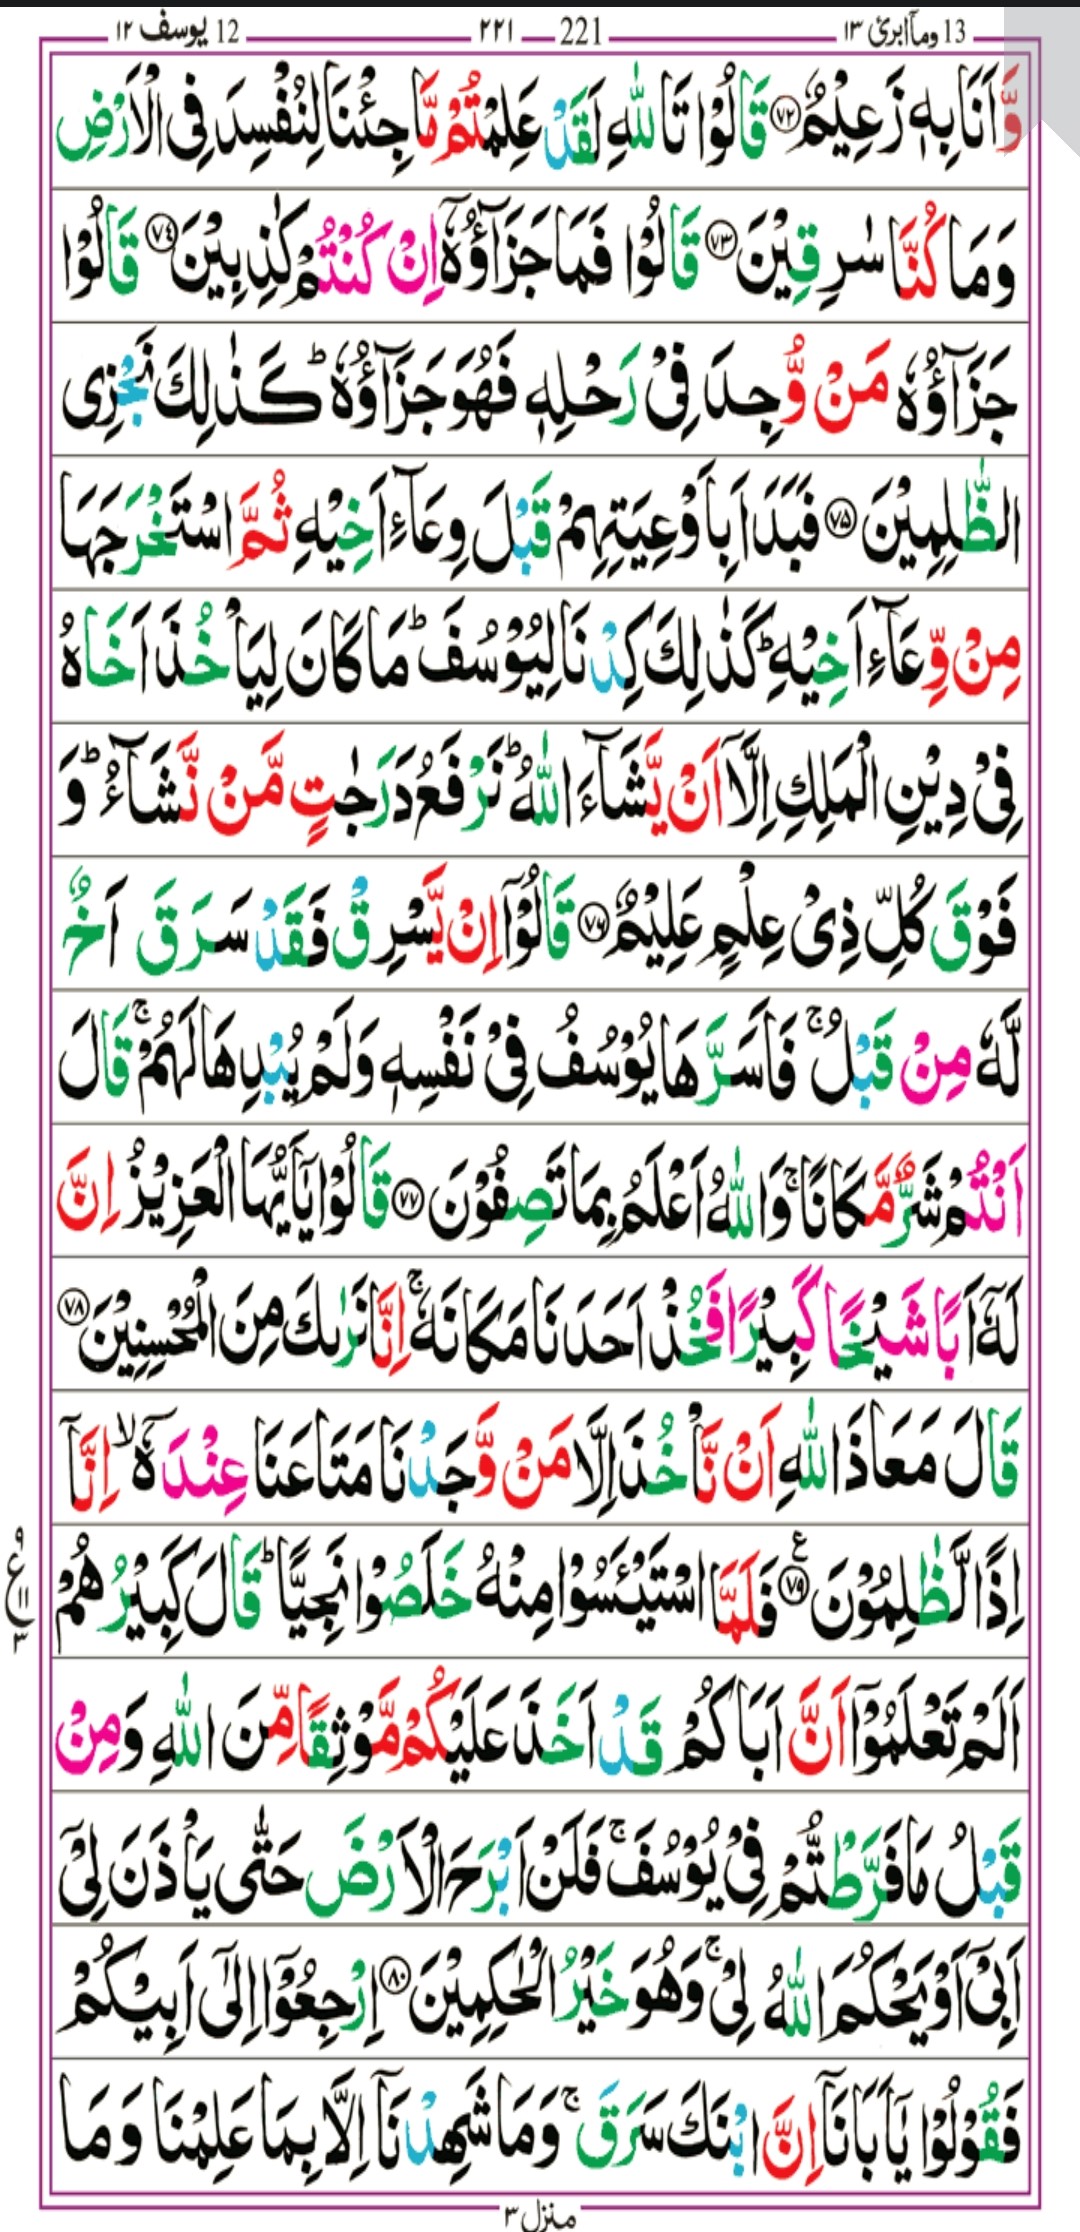 13 ومآابرئ ١٣ 221 ٢٢١ 12 يوسف ١٢
وَّ اَنَا بِهٖ زَعِيْمٌ ٧٢ قَالُوْا تَاللّٰهِ لَقَدْ عَلِمْتُمْ مَّا جِئْنَا لِنُفْسِدَ فِى الْاَرْضِ
وَمَا كُنَّا سٰرِقِيْنَ ٧٣ قَالُوْا فَمَا جَزَآؤُهٗٓ اِنْ كُنْتُمْ كٰذِبِيْنَ ٧٤ قَالُوْا
جَزَآؤُهٗ مَنْ وُّجِدَ فِىْ رَحْلِهٖ فَهُوَ جَزَآؤُهٗ ؕ كَذٰلِكَ نَجْزِى
الظّٰلِمِيْنَ ٧٥ فَبَدَاَ بِاَوْعِيَتِهِمْ قَبْلَ وِعَآءِ اَخِيْهِ ثُمَّ اسْتَخْرَجَهَا
مِنْ وِّعَآءِ اَخِيْهِ ؕ كَذٰلِكَ كِدْنَا لِيُوْسُفَ ؕ مَا كَانَ لِيَاْخُذَ اَخَاهُ
فِىْ دِيْنِ الْمَلِكِ اِلَّاۤ اَنْ يَّشَآءَ اللّٰهُ ؕ نَرْفَعُ دَرَجٰتٍ مَّنْ نَّشَآءُ ؕ وَ
فَوْقَ كُلِّ ذِىْ عِلْمٍ عَلِيْمٌ ٧٦ قَالُوْۤا اِنْ يَّسْرِقْ فَقَدْ سَرَقَ اَخٌ
لَّهٗ مِنْ قَبْلُ ۚ فَاَسَرَّهَا يُوْسُفُ فِىْ نَفْسِهٖ وَلَمْ يُبْدِهَا لَهُمْ ۚ قَالَ
اَنْتُمْ شَرٌّ مَّكَانًا ۚ وَاللّٰهُ اَعْلَمُ بِمَا تَصِفُوْنَ ٧٧ قَالُوْا يٰۤاَيُّهَا الْعَزِيْزُ اِنَّ
لَهٗۤ اَبًا شَيْخًا كَبِيْرًا فَخُذْ اَحَدَنَا مَكَانَهٗ ۚ اِنَّا نَرٰىكَ مِنَ الْمُحْسِنِيْنَ ٧٨
قَالَ مَعَاذَ اللّٰهِ اَنْ نَّاْخُذَ اِلَّا مَنْ وَّجَدْنَا مَتَاعَنَا عِنْدَهٗۤ ۙ اِنَّاۤ
اِذًا لَّظٰلِمُوْنَ ٧٩ ع فَلَمَّا اسْتَيْـَٔسُوْا مِنْهُ خَلَصُوْا نَجِيًّا ؕ قَالَ كَبِيْرُهُمْ
٩ ع ١١ ٣
اَلَمْ تَعْلَمُوْۤا اَنَّ اَبَاكُمْ قَدْ اَخَذَ عَلَيْكُمْ مَّوْثِقًا مِّنَ اللّٰهِ وَمِنْ
قَبْلُ مَا فَرَّطْتُّمْ فِىْ يُوْسُفَ ۚ فَلَنْ اَبْرَحَ الْاَرْضَ حَتّٰى يَاْذَنَ لِىْۤ
اَبِىْۤ اَوْ يَحْكُمَ اللّٰهُ لِىْ ۚ وَهُوَ خَيْرُ الْحٰكِمِيْنَ ٨٠ اِرْجِعُوْۤا اِلٰٓى اَبِيْكُمْ
فَقُوْلُوْا يٰۤاَبَانَاۤ اِنَّ ابْنَكَ سَرَقَ ۚ وَمَا شَهِدْنَاۤ اِلَّا بِمَا عَلِمْنَا وَمَا
منزل ٣